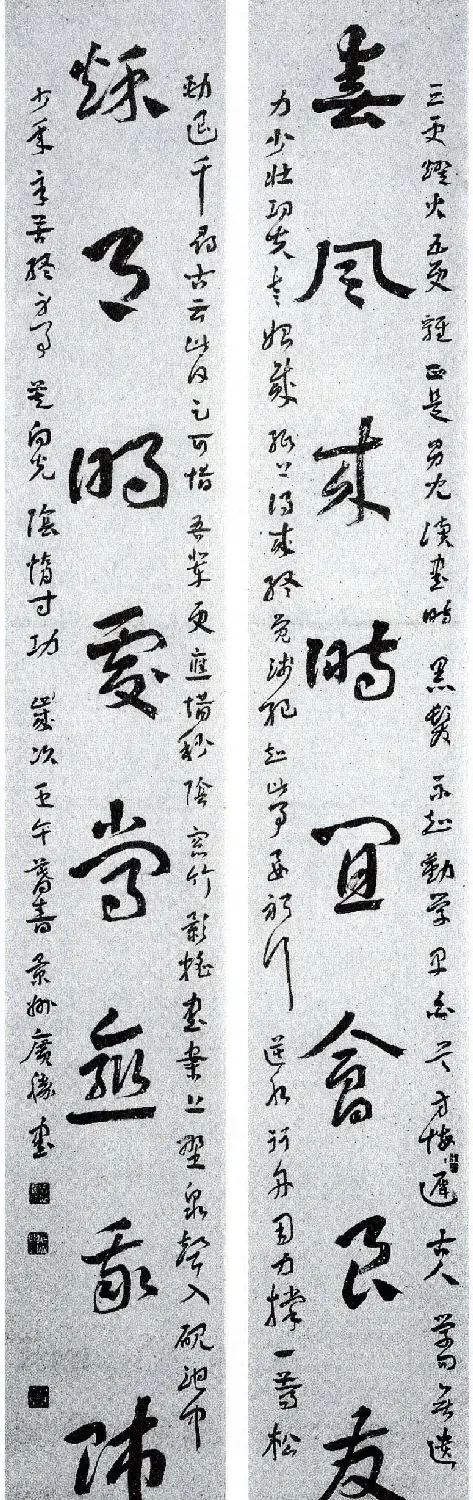 春风来时宜會良友
三更燈火五更雞正是男兒讀書時黑髮不知勤學早白首方悔遲古人學問無遺
力少壯功夫老始成紙上得來終覺淺絕知此事要躬行逆水行舟用力撐一篙松
秋月明處常我師
勁退千尋古云此日足可惜吾輩更應惜秒陰窗竹影搖書案上野泉聲入硯池中
少年辛苦終身事莫向光陰惰寸功歲次壬午暮春景州廣勝書